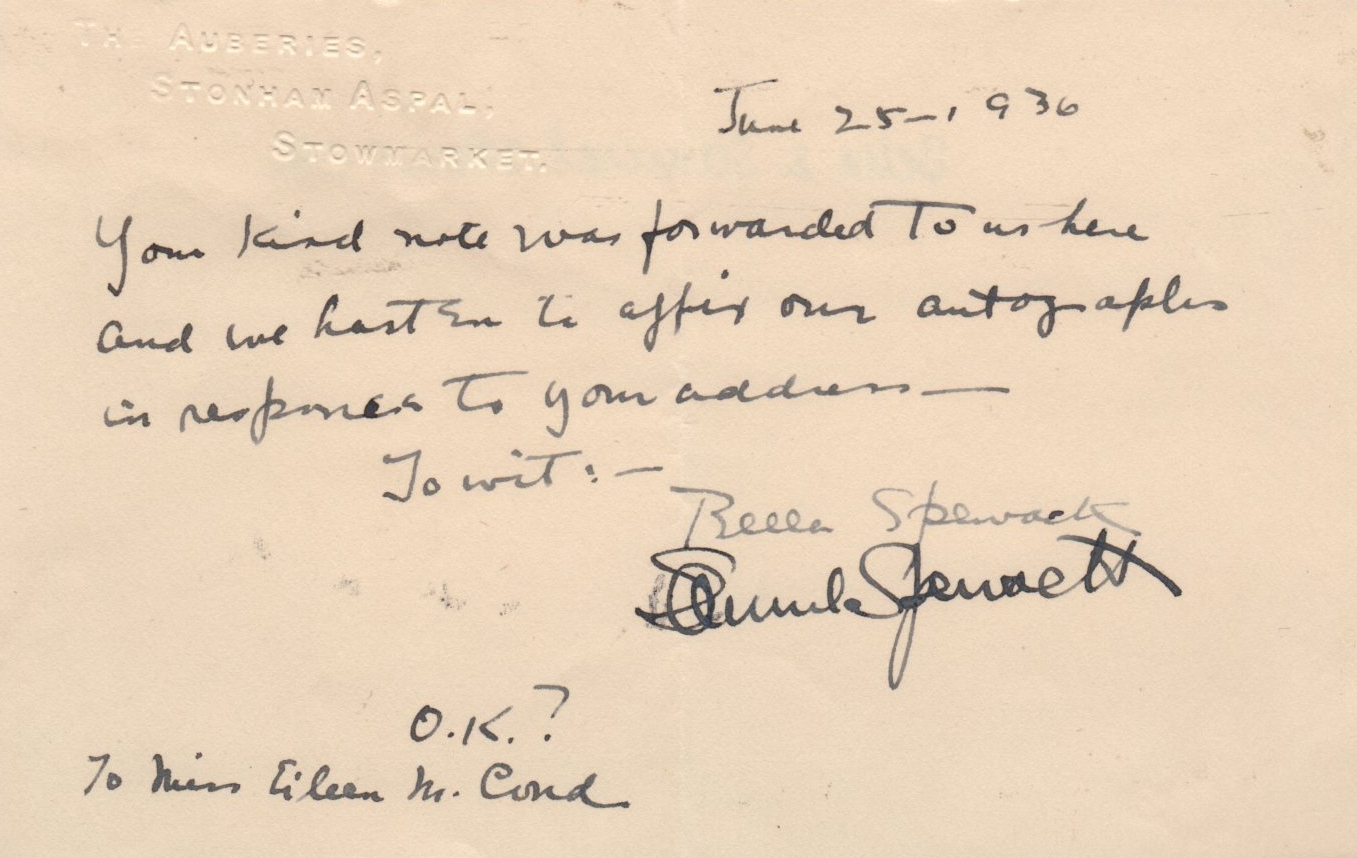 THE AUBERIES,
STONHAM ASPAL,
STOWMARKET.
June 25-1936
Your kind note was forwarded to us here
and we hasten to affix our autographs
in response to your address—
To wit:—
Bella Spewack
Samuel Spewack
O.K.?
To Miss Eileen M. Cond